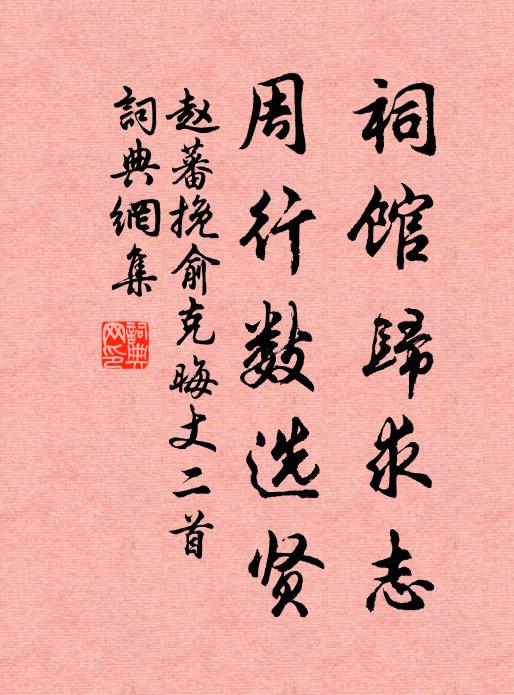 祠馆歸求志
周行数选贤
赵蕃挽俞克晦丈二首
詞典網集
詞典網印